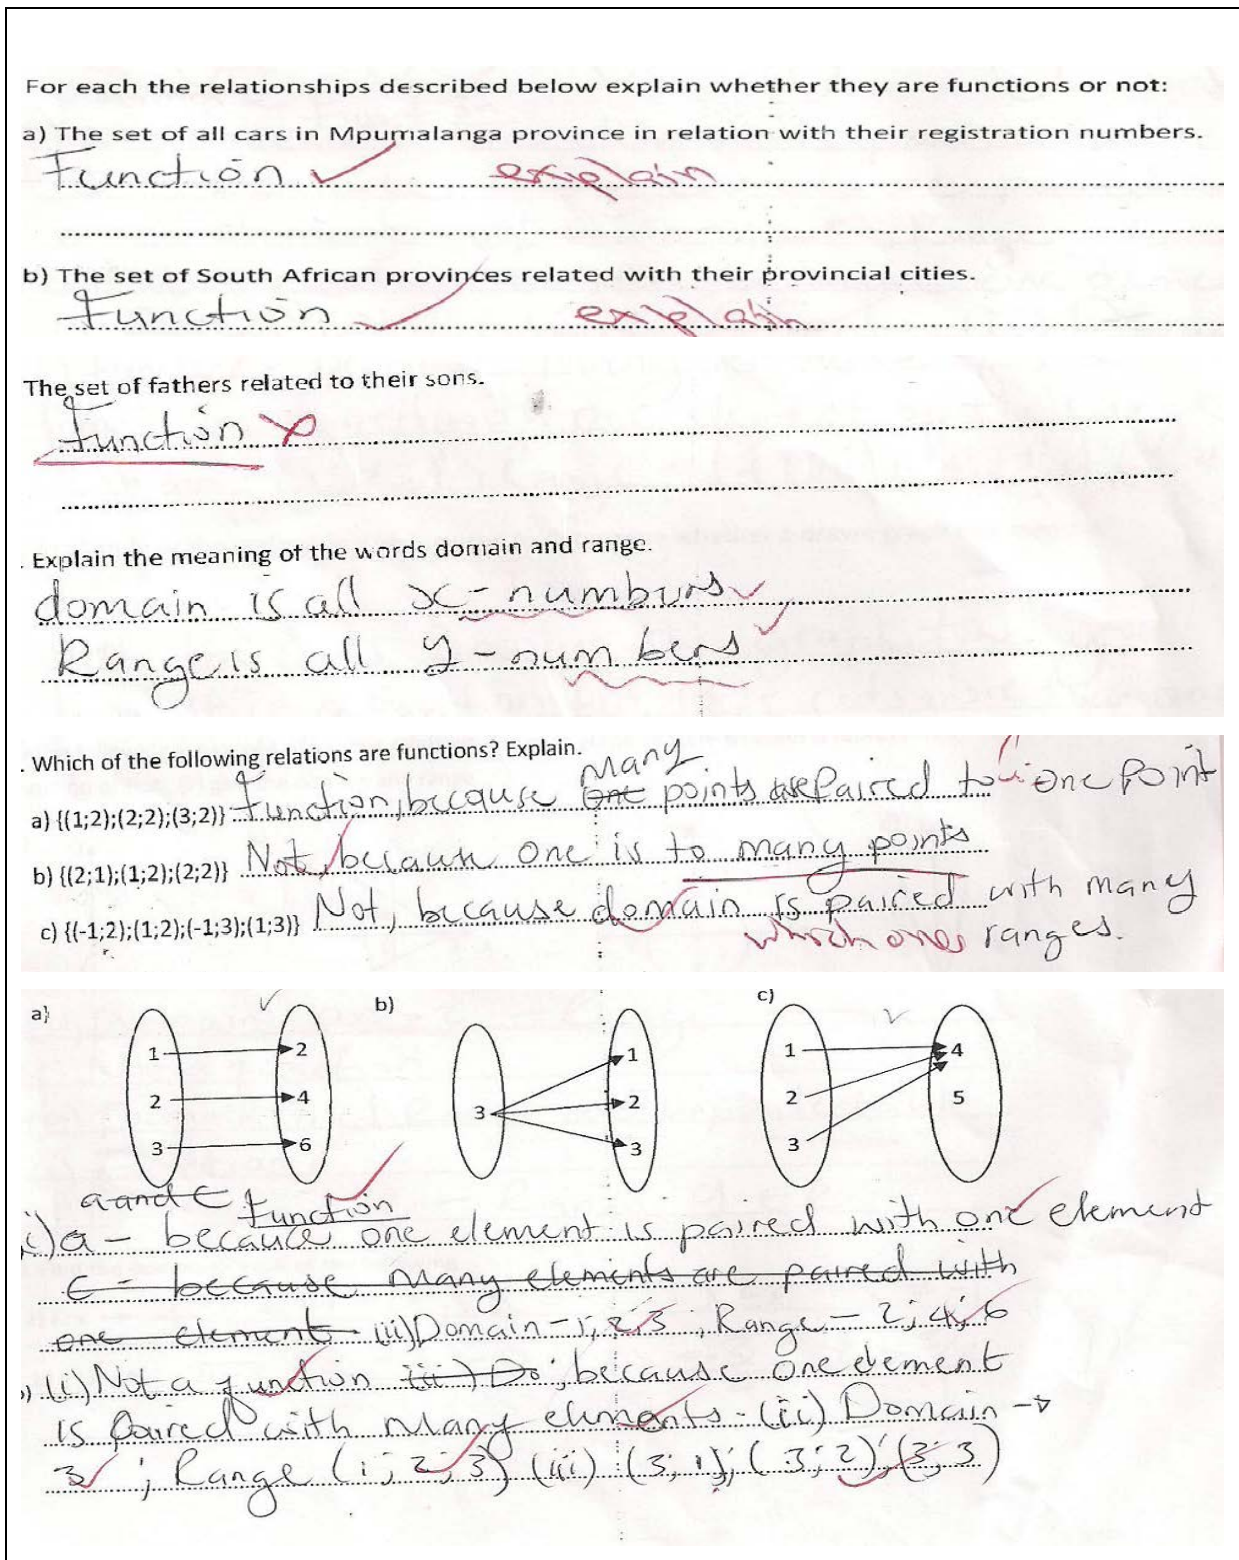 For each the relationships described below explain whether they are functions or not:
a) The set of all cars in Mpumalanga province in relation with their registration numbers.
Function explain
b) The set of South African provinces related with their provincial cities.
Function explain
The set of fathers related to their sons.
Function
. Explain the meaning of the words domain and range.
domain is all x-numburs
Range is all y-numbers
. Which of the following relations are functions? Explain.
many
a) {(1;2);(2;2);(3;2)} Function, because one points are Paired to one Point
b) {(2;1);(1;2);(2;2)} Not, because one is to many points
c) {(-1;2);(1;2);(-1;3);(1;3)} Not, because domain is paired with many
which ones ranges.
a) b) c)
1 2 1 1 4
2 4 3 2 2 5
3 6 3 3
a and c Function
i) a - because one element is paired with one element
c - because many elements are paired with
one element (ii) Domain - 1; 2; 3 ; Range - 2; 4; 6
(i) Not a function iii) Do ; because one element
is Paired with many elements - (ii) Domain →
3 ; Range (1; 2; 3) (iii) (3; 1); (3; 2); (3; 3)